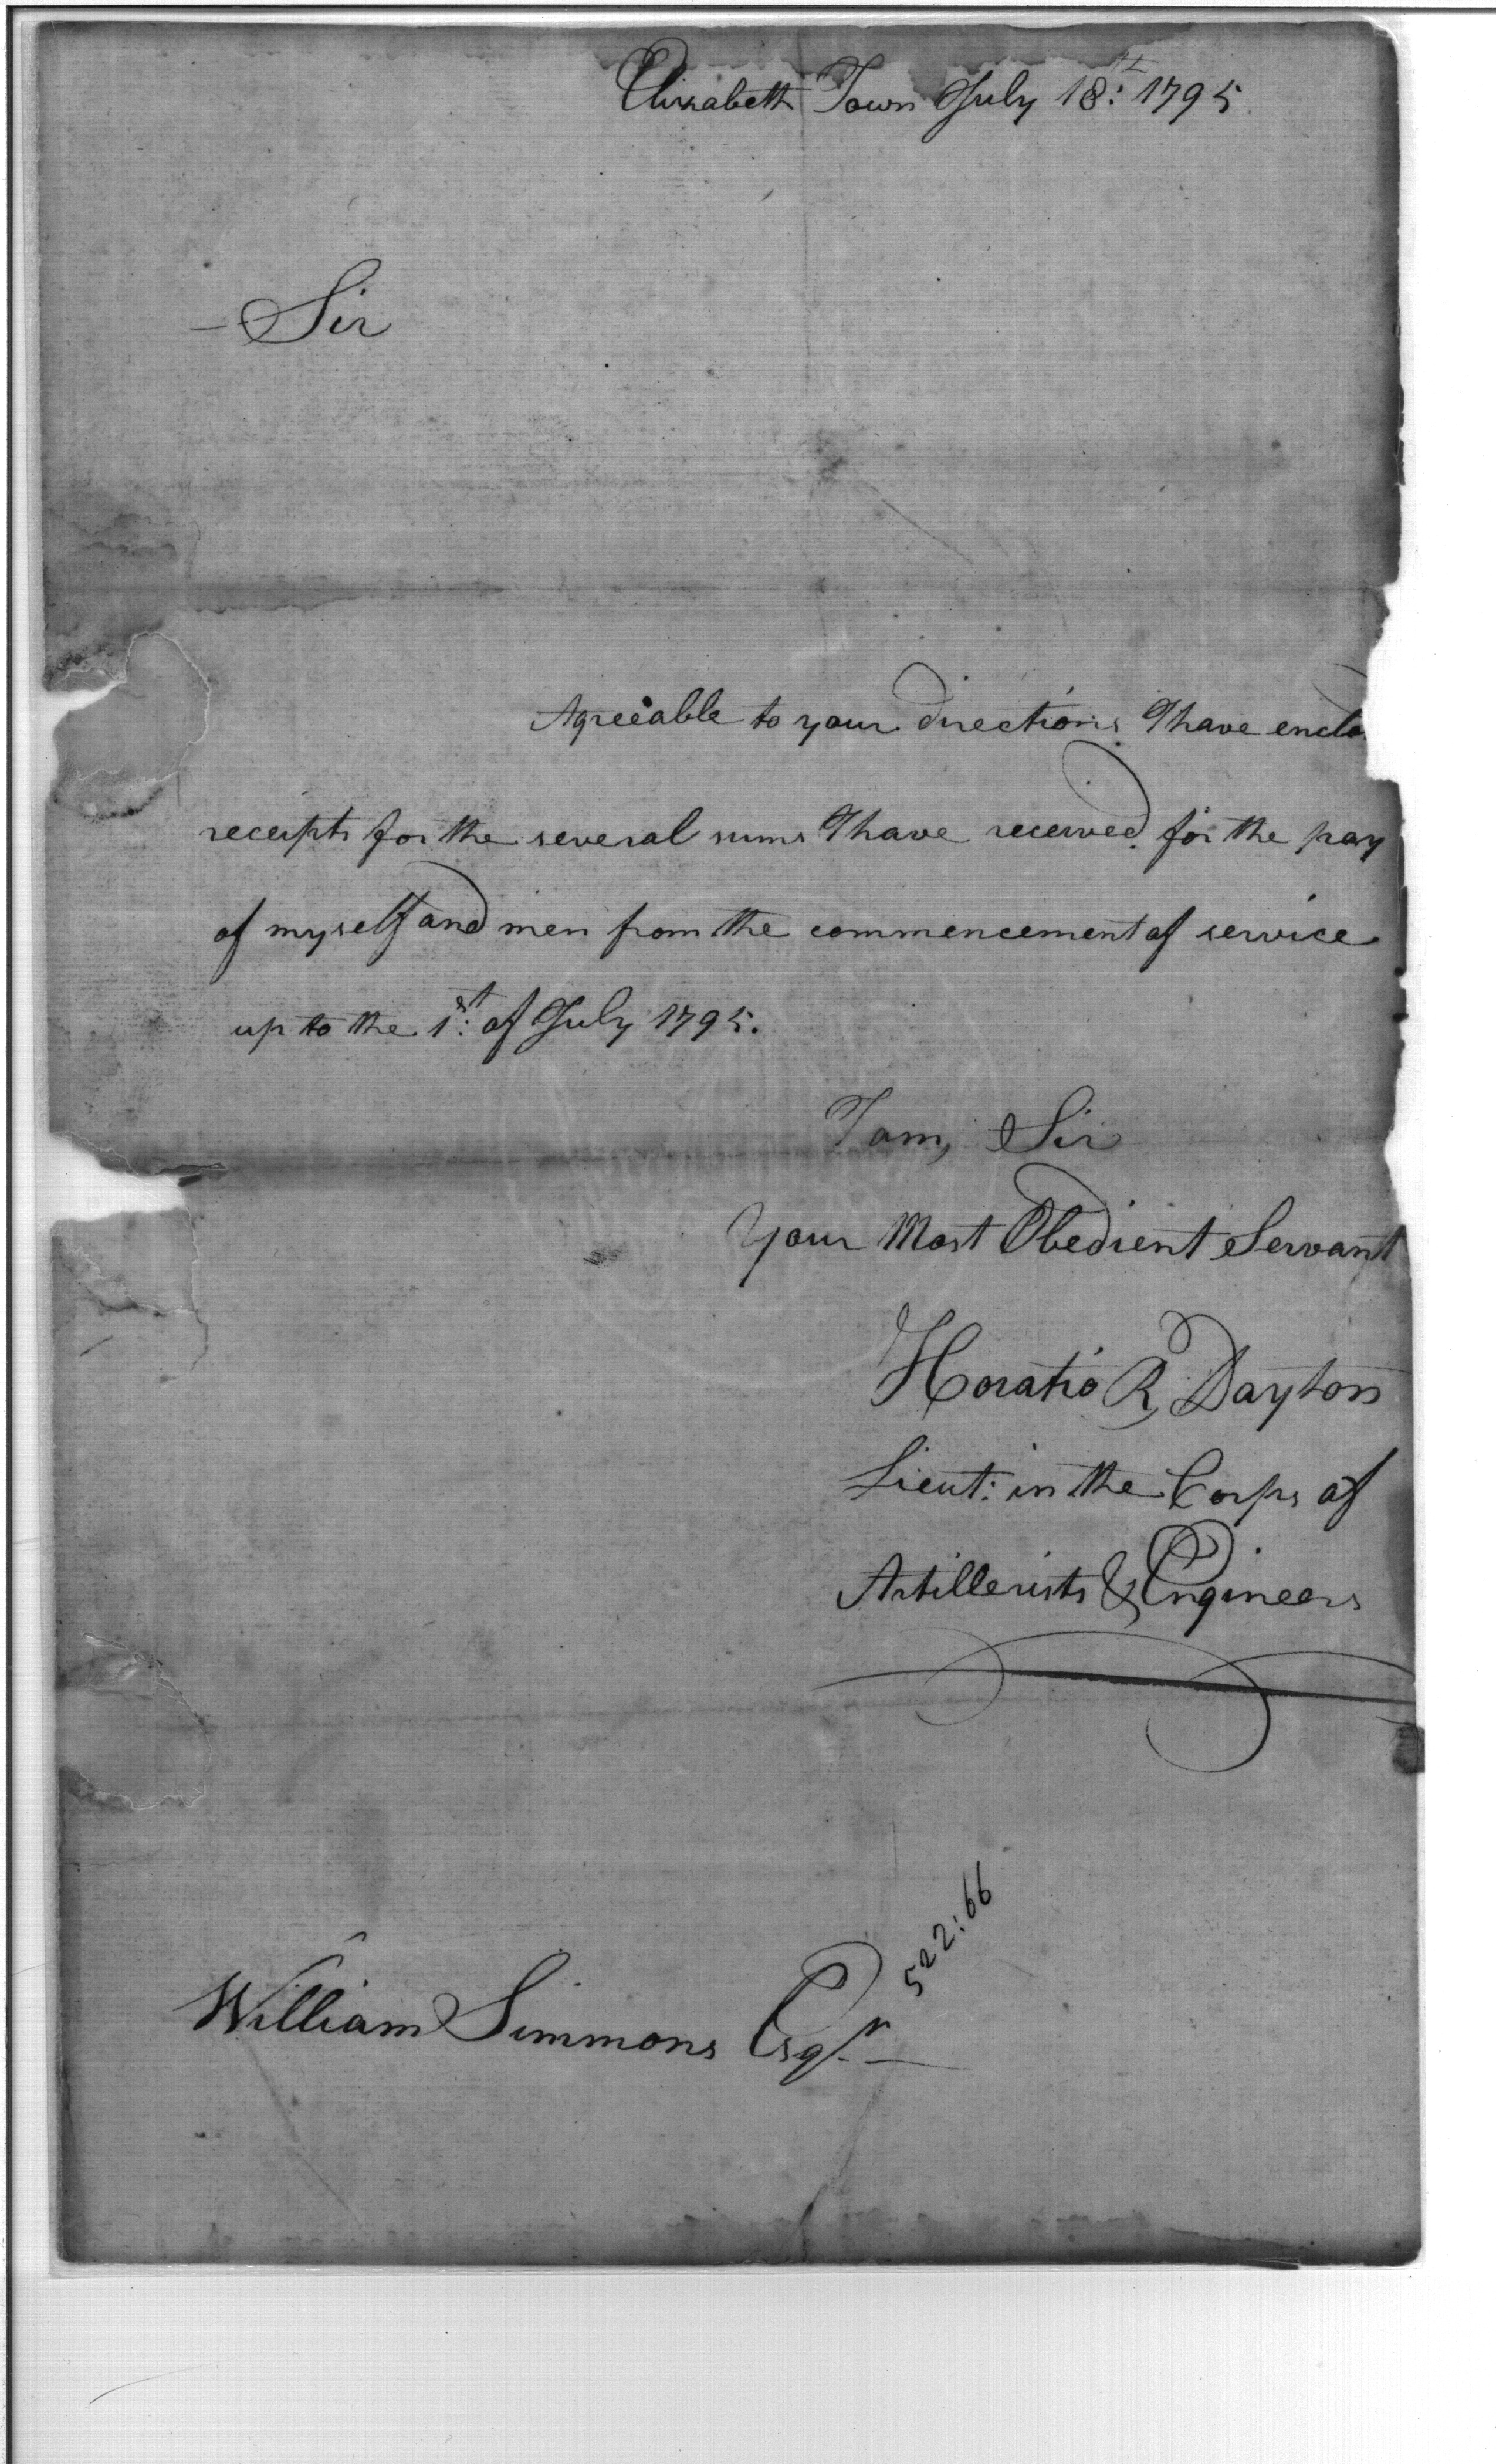 Elizabeth Town July 18:th 1795
Sir
Agreeable to your directions I have enclo
receipts for the several sums I have received for the pay
of myself and men from the commencement of service
up to the 1:st of July 1795.
I am, Sir
Your Most Obedient Servant
Horatio R Dayton
Lieut: in the Corps of
Artillerists & Engineers
522:66
William Simmons Esqr